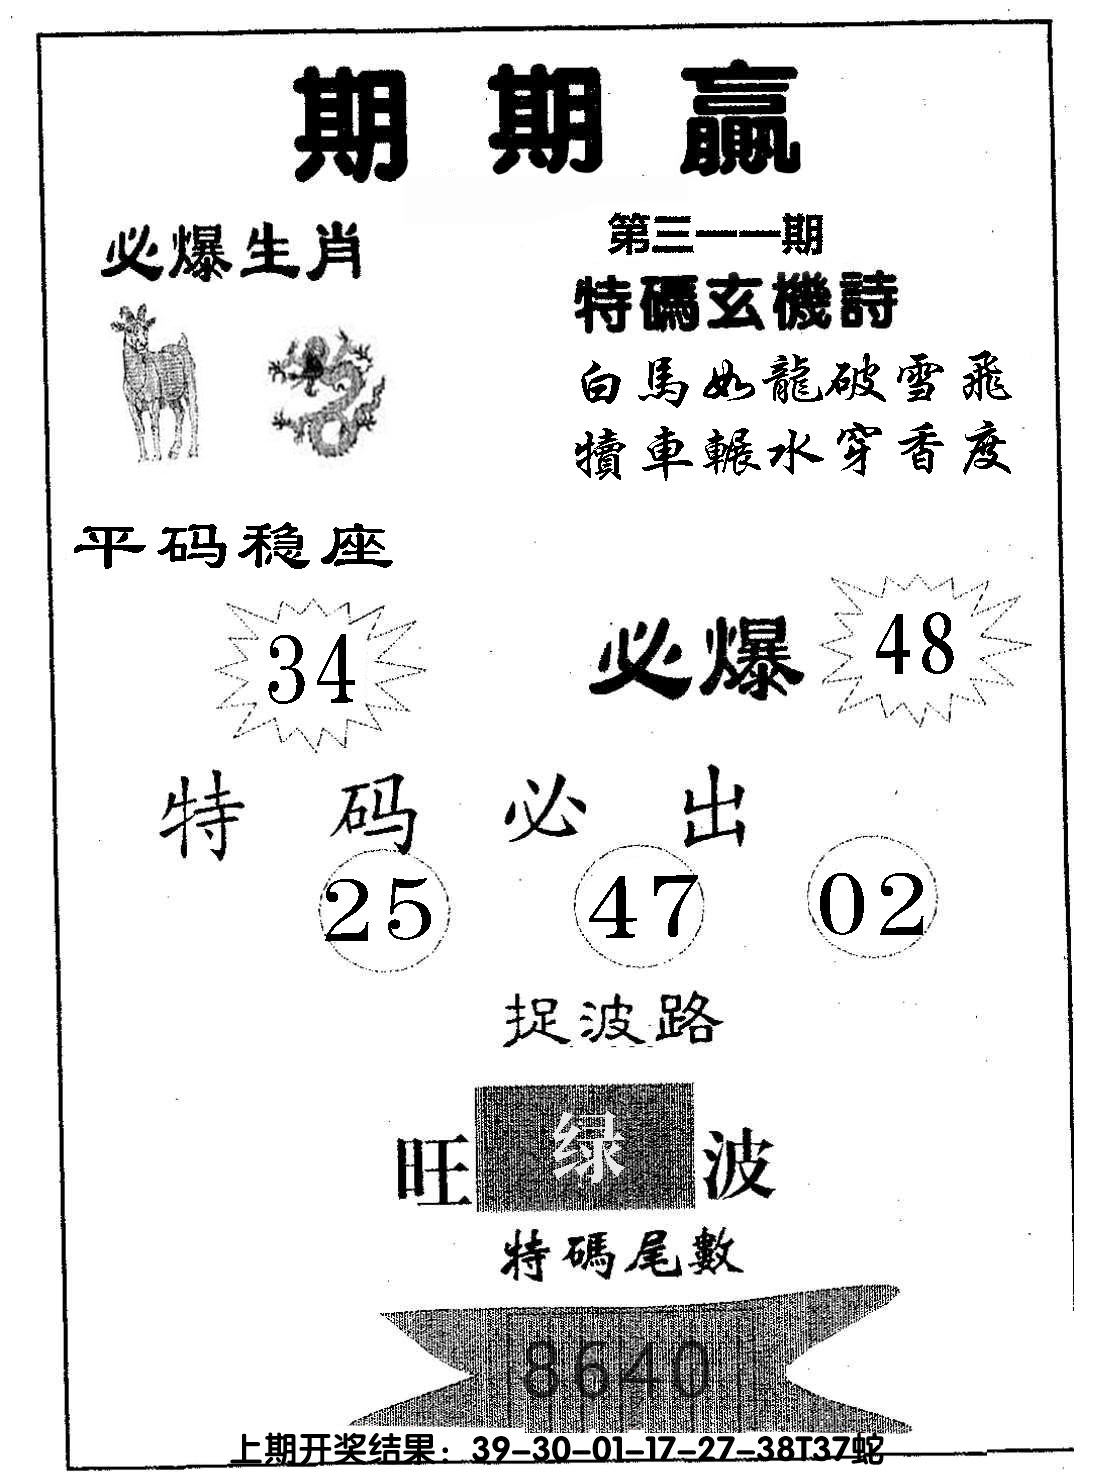 期期贏
必爆生肖
第三一一期
特碼玄機詩
白馬如龍破雪飛
犢車輾水穿香度
平码稳座
34
必爆 48
特码必出
25 47 02
捉波路
旺 绿 波
特碼尾數
8640
上期开奖结果：39-30-01-17-27-38T37蛇